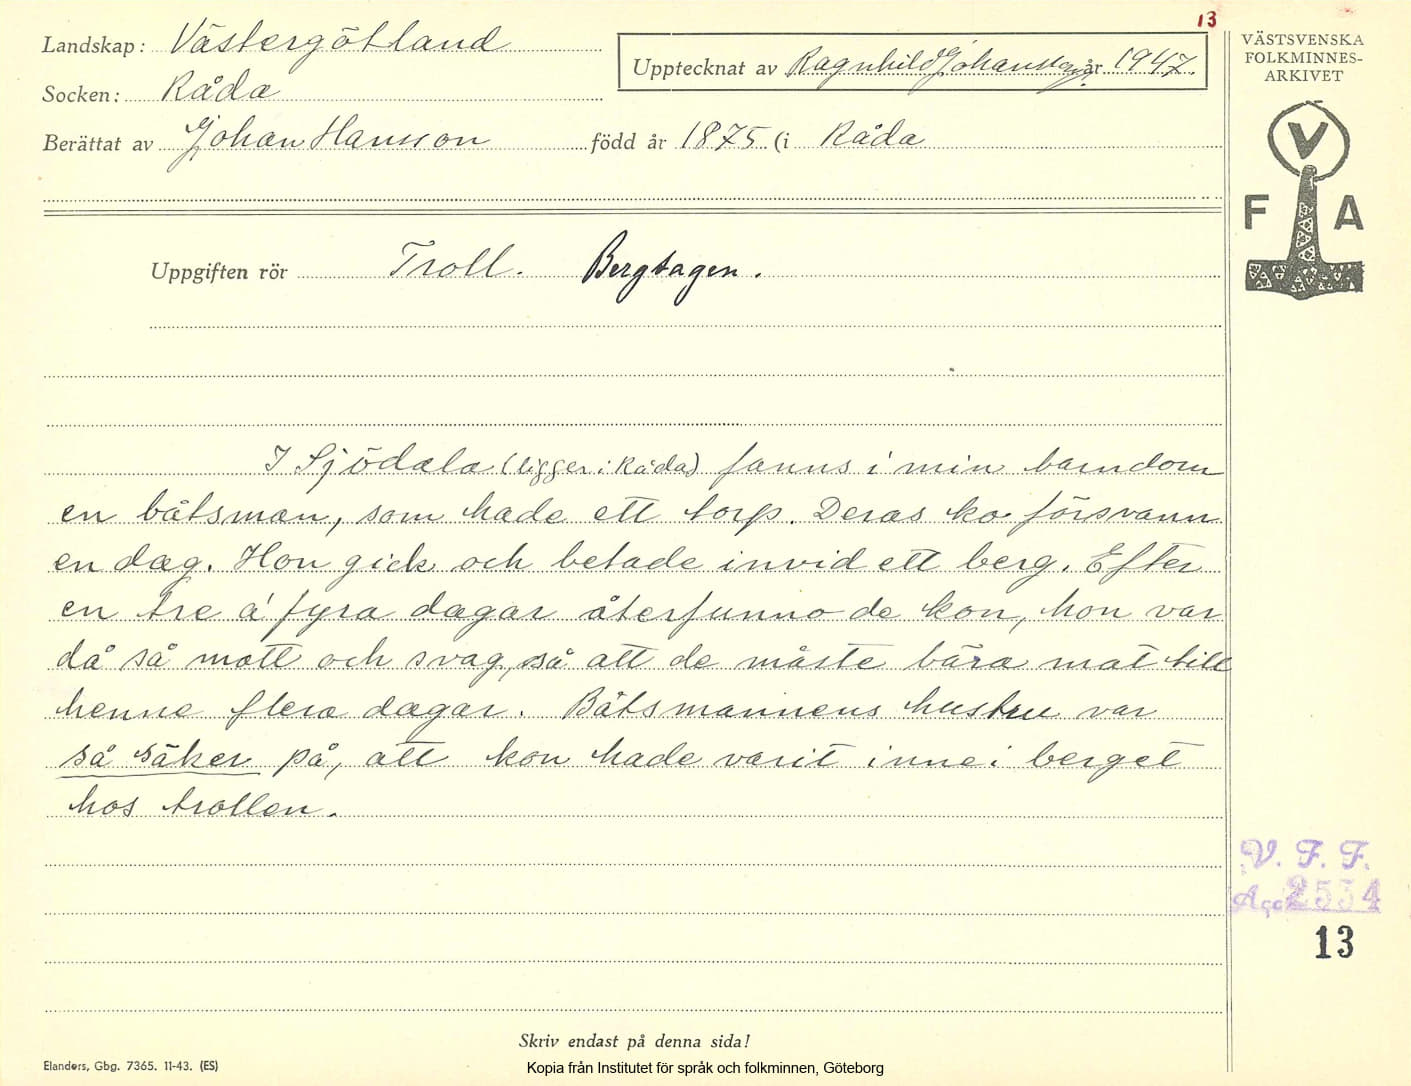 13
Landskap: Västergötland
Socken: Råda
Upptecknat av Ragnhild Johansson år 1947.
Berättat av Johan Hansson född år 1875 (i Råda
VÄSTSVENSKA
FOLKMINNES-
ARKIVET
V
F A
Uppgiften rör Troll. Bergtagen.
I Sjödala (ligger i Råda) fanns i min barndom
en båtsman, som hade ett torp. Deras ko försvann
en dag. Hon gick och betade invid ett berg. Efter
en tre á fyra dagar återfunno de kon, hon var
då så matt och svag, så att de måste bära mat till
henne flera dagar. Båtsmannens hustru var
så säker på, att kon hade varit inne i berget
hos trollen.
V. F. F.
Acc 2534
13
Skriv endast på denna sida!
Elanders, Gbg. 7365. 11-43. (ES)
Kopia från Institutet för språk och folkminnen, Göteborg